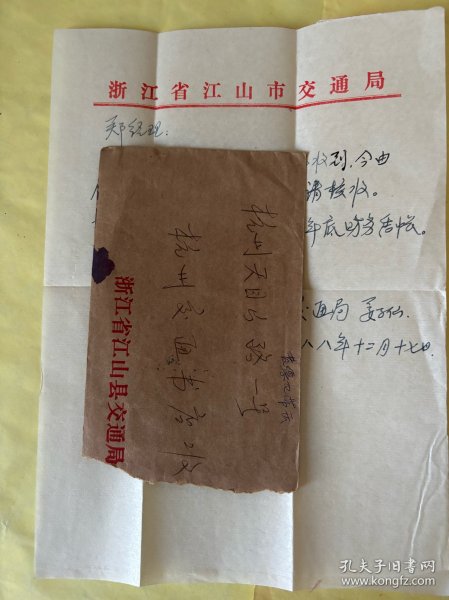 浙江省江山市交通局
郑经理:
收到,今由
请接收。
年底财务结帐。
交通局 姜子仙
八八年十二月十七日
杭州天目山路一号
杭州交通书店收
浙江省江山县交通局
孔夫子旧书网
www.kongfz.com